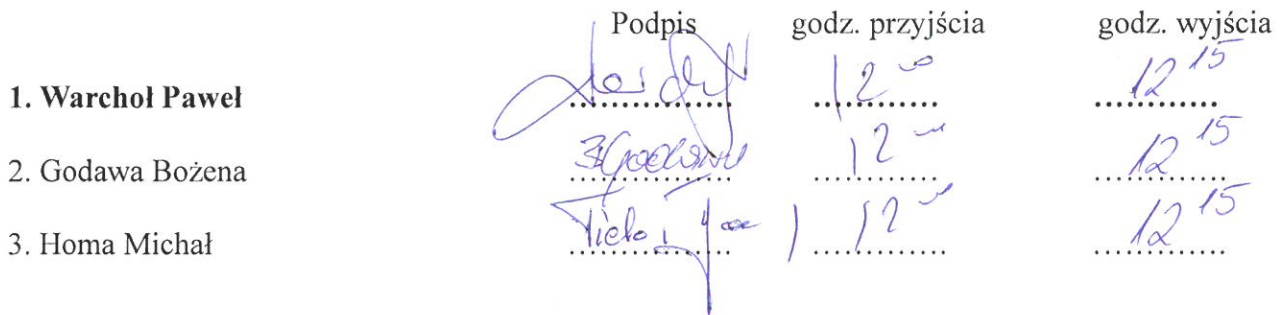 Podpis godz. przyjścia godz. wyjścia
1. Warchoł Paweł 12 00 12 15
2. Godawa Bożena BGodawa 12 00 12 15
3. Homa Michał 12 00 12 15